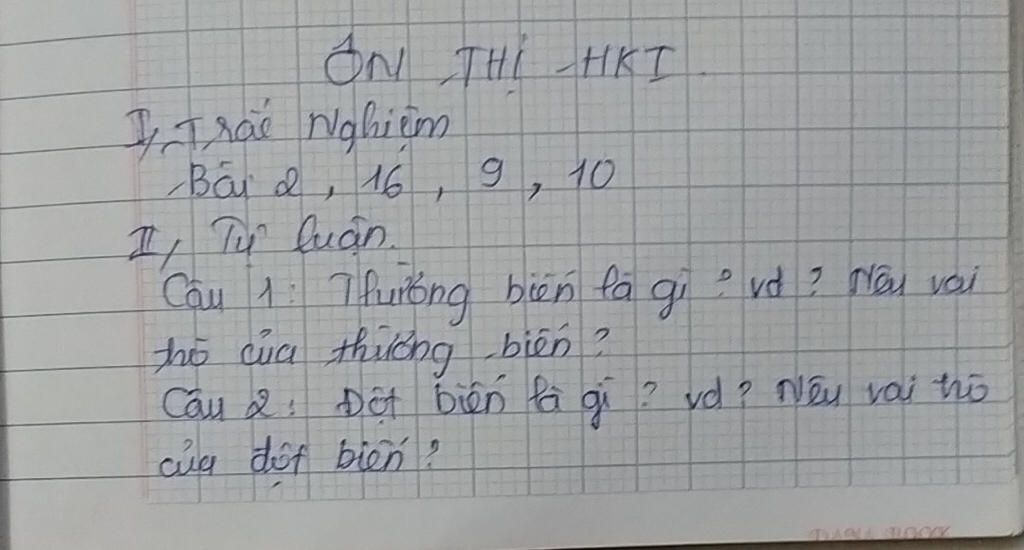 ÔN THI HKI
I, Trắc Nghiệm
Bài 2, 16, 9, 10
II, Tự luận.
Câu 1: Thường biến là gì? vd? Nêu vai
trò của thường biến?
Câu 2: Đột biến là gì? vd? Nêu vai trò
của đột biến?